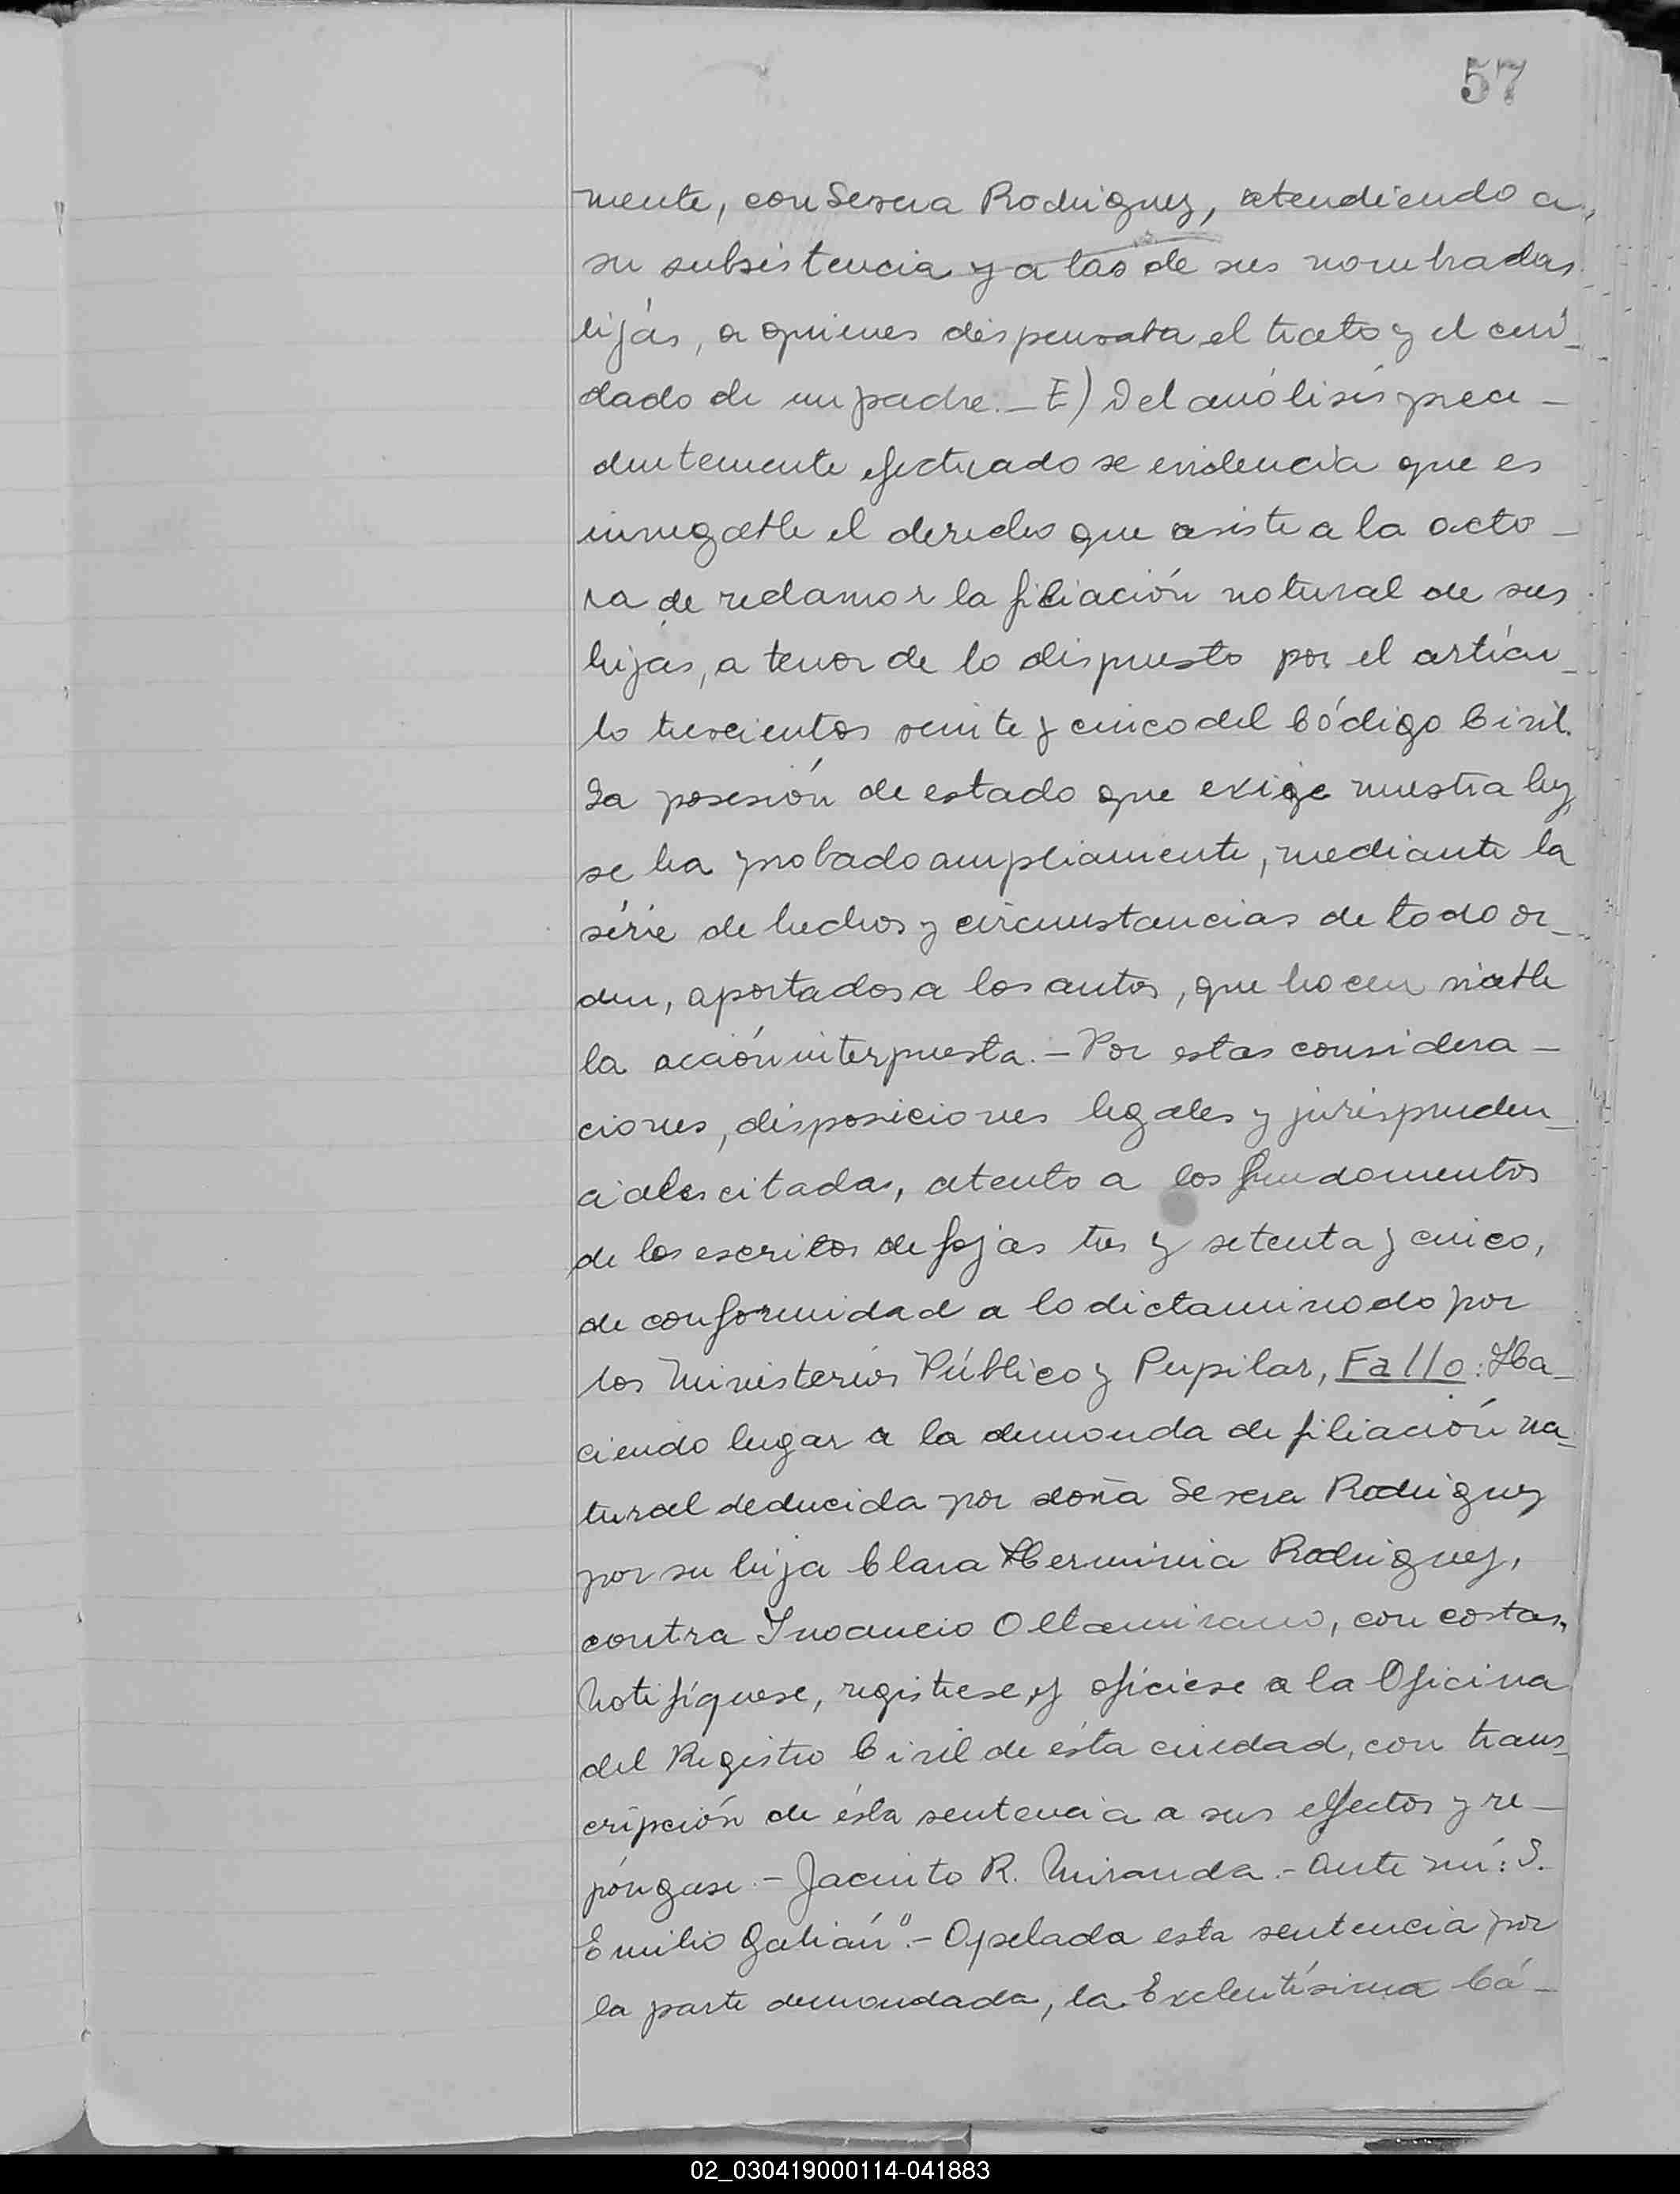 57
mente, con Severa Rodriguez, atendiendo a
su subsistencia y a las de sus nombradas
hijas, a quienes dispensaba el trato y el cui-
dado de un padre.- E) Del análisis prece-
dentemente efectuado se evidencia que es
innegable el derecho que asiste a la acto-
ra de reclamar la filiación natural de sus
hijas, a tenor de lo dispuesto por el artícu-
lo trescientos veinte y cinco del Código Civil.
La posesión de estado que exige nuestra ley,
se ha probado ampliamente, mediante la
série de hechos y circunstancias de todo or-
den, aportados a los autos, que hacen viable
la acción interpuesta.- Por estas considera-
ciones, disposiciones legales y jurispruden-
ciales citadas, atento a los fundamentos
de los escritos de fojas tres y setenta y cinco,
de conformidad a lo dictaminado por
los Ministerios Público y Pupilar, Fallo: Ha-
ciendo lugar a la demanda de filiación na-
tural deducida por doña Severa Rodriguez
por su hija Clara Herminia Rodriguez,
contra Inoancio Altamirano, con costas.
Notifíquese, regístrese, y ofíciese a la Oficina
del Registro Civil de ésta ciudad, con trans-
cripción de ésta sentencia a sus efectos y re-
póngase.- Jacinto R. Miranda.- Ante mí: S.
Emilio Galián".- Apelada esta sentencia por
la parte demandada, la Exelentísima Cá-
02_030419000114-041883